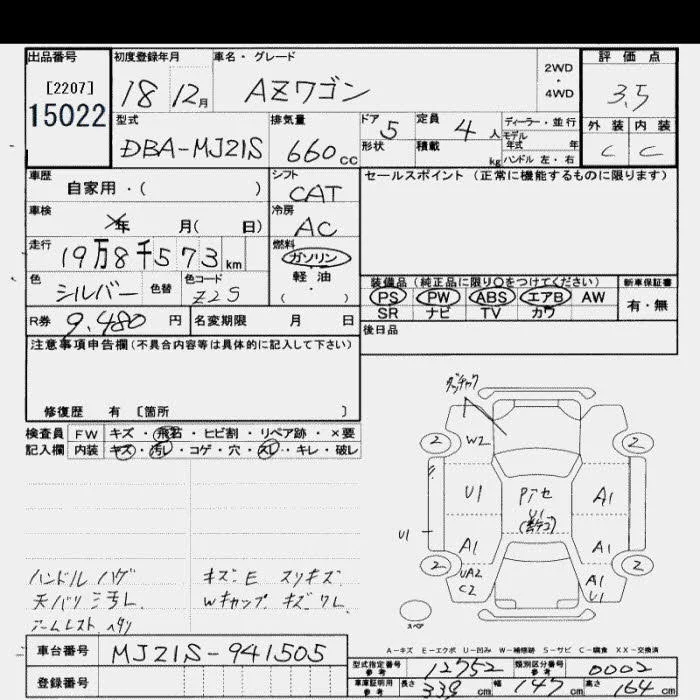 出品番号 初度登録年月 車名・グレード 評価点
[2207] 18 12月 AZワゴン 2WD・4WD 3.5
15022
型式 排気量 ドア 5 定員 4人 ディーラー・並行 外装 内装
DBA-MJ21S 660cc 形状 積載 kg モデル年式 年 C C
ハンドル 左・右
車歴 シフト セールスポイント(正常に機能するものに限ります)
自家用・( ) CAT
車検 冷房
年 月( 日) AC
走行 燃料
19万8千573km ガソリン
色 色替 色コード 軽油 装備品(純正品に限り○をつけてください) 新車保証書
シルバー Z2S ( ・ ) PS PW ABS エアB AW 有・無
SR ナビ TV カワ
R券 9,480円 名変期限 月 日 後日品
注意事項申告欄(不具合内容等は具体的に記入して下さい)
修復歴 有 [箇所 ]
検査員 FW キズ・飛石・ヒビ割・リペア跡・×要
記入欄 内装 キズ・汚レ・コゲ・穴・スレ・キレ・破レ
2 W2 2
U1 A1
U1
U1 A1 A1
2 UA2 C2 A1 U1 2
スペア
ハンドル ハゲ キズ.E スリキズ
天バリ 汚L. Wキャップ キズ ワL.
アームレスト ヘタリ
A-キズ E-エクボ U-凹み W-補修跡 S-サビ C-腐食 XX-交換済
車台番号 MJ21S-941505 型式指定番号 参考 12752 類別区分番号 参考 0002
登録番号 車庫証明用 参考 長さ 339cm 幅 147cm 高さ 164cm